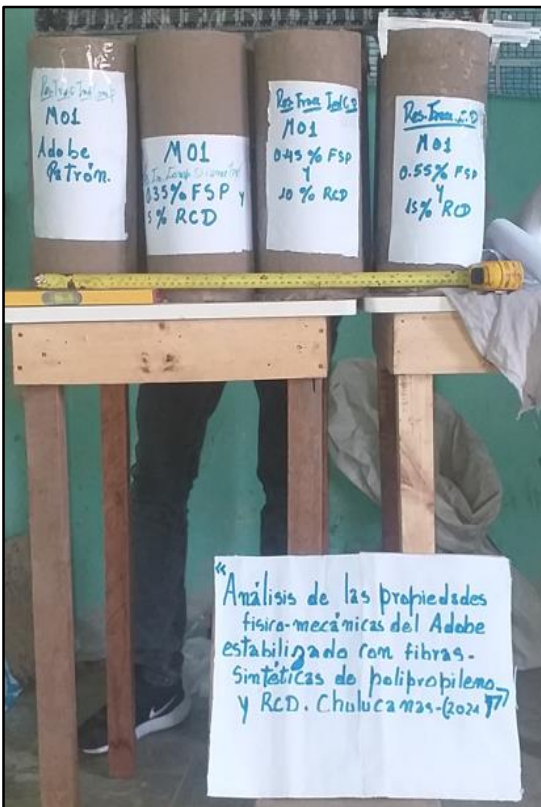 M01
Adobe
Patrón.
M01
0.35% FSP y
5% RCD
M01
0.45% FSP
y
10% RCD
Res. Tracc. I.D
M01
0.55% FSP
y
15% RCD
"Análisis de las propiedades
físico-mecánicas del Adobe
estabilizado con fibras-
sintéticas de polipropileno
y RCD. Chulucanas-(2021)"